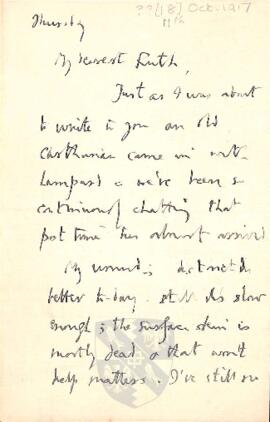 ??(18) Oct. 1917
11th
Thursday
My dearest Ruth,
Just as I was about
to write to you an old
Carthusian came in with
Lampard & we've been so
continuously chatting that
post time has almost arrived
My wound is distinctly
better to-day. still it's slow
enough; the surface skin is
mostly dead & that won't
help matters. I've still no